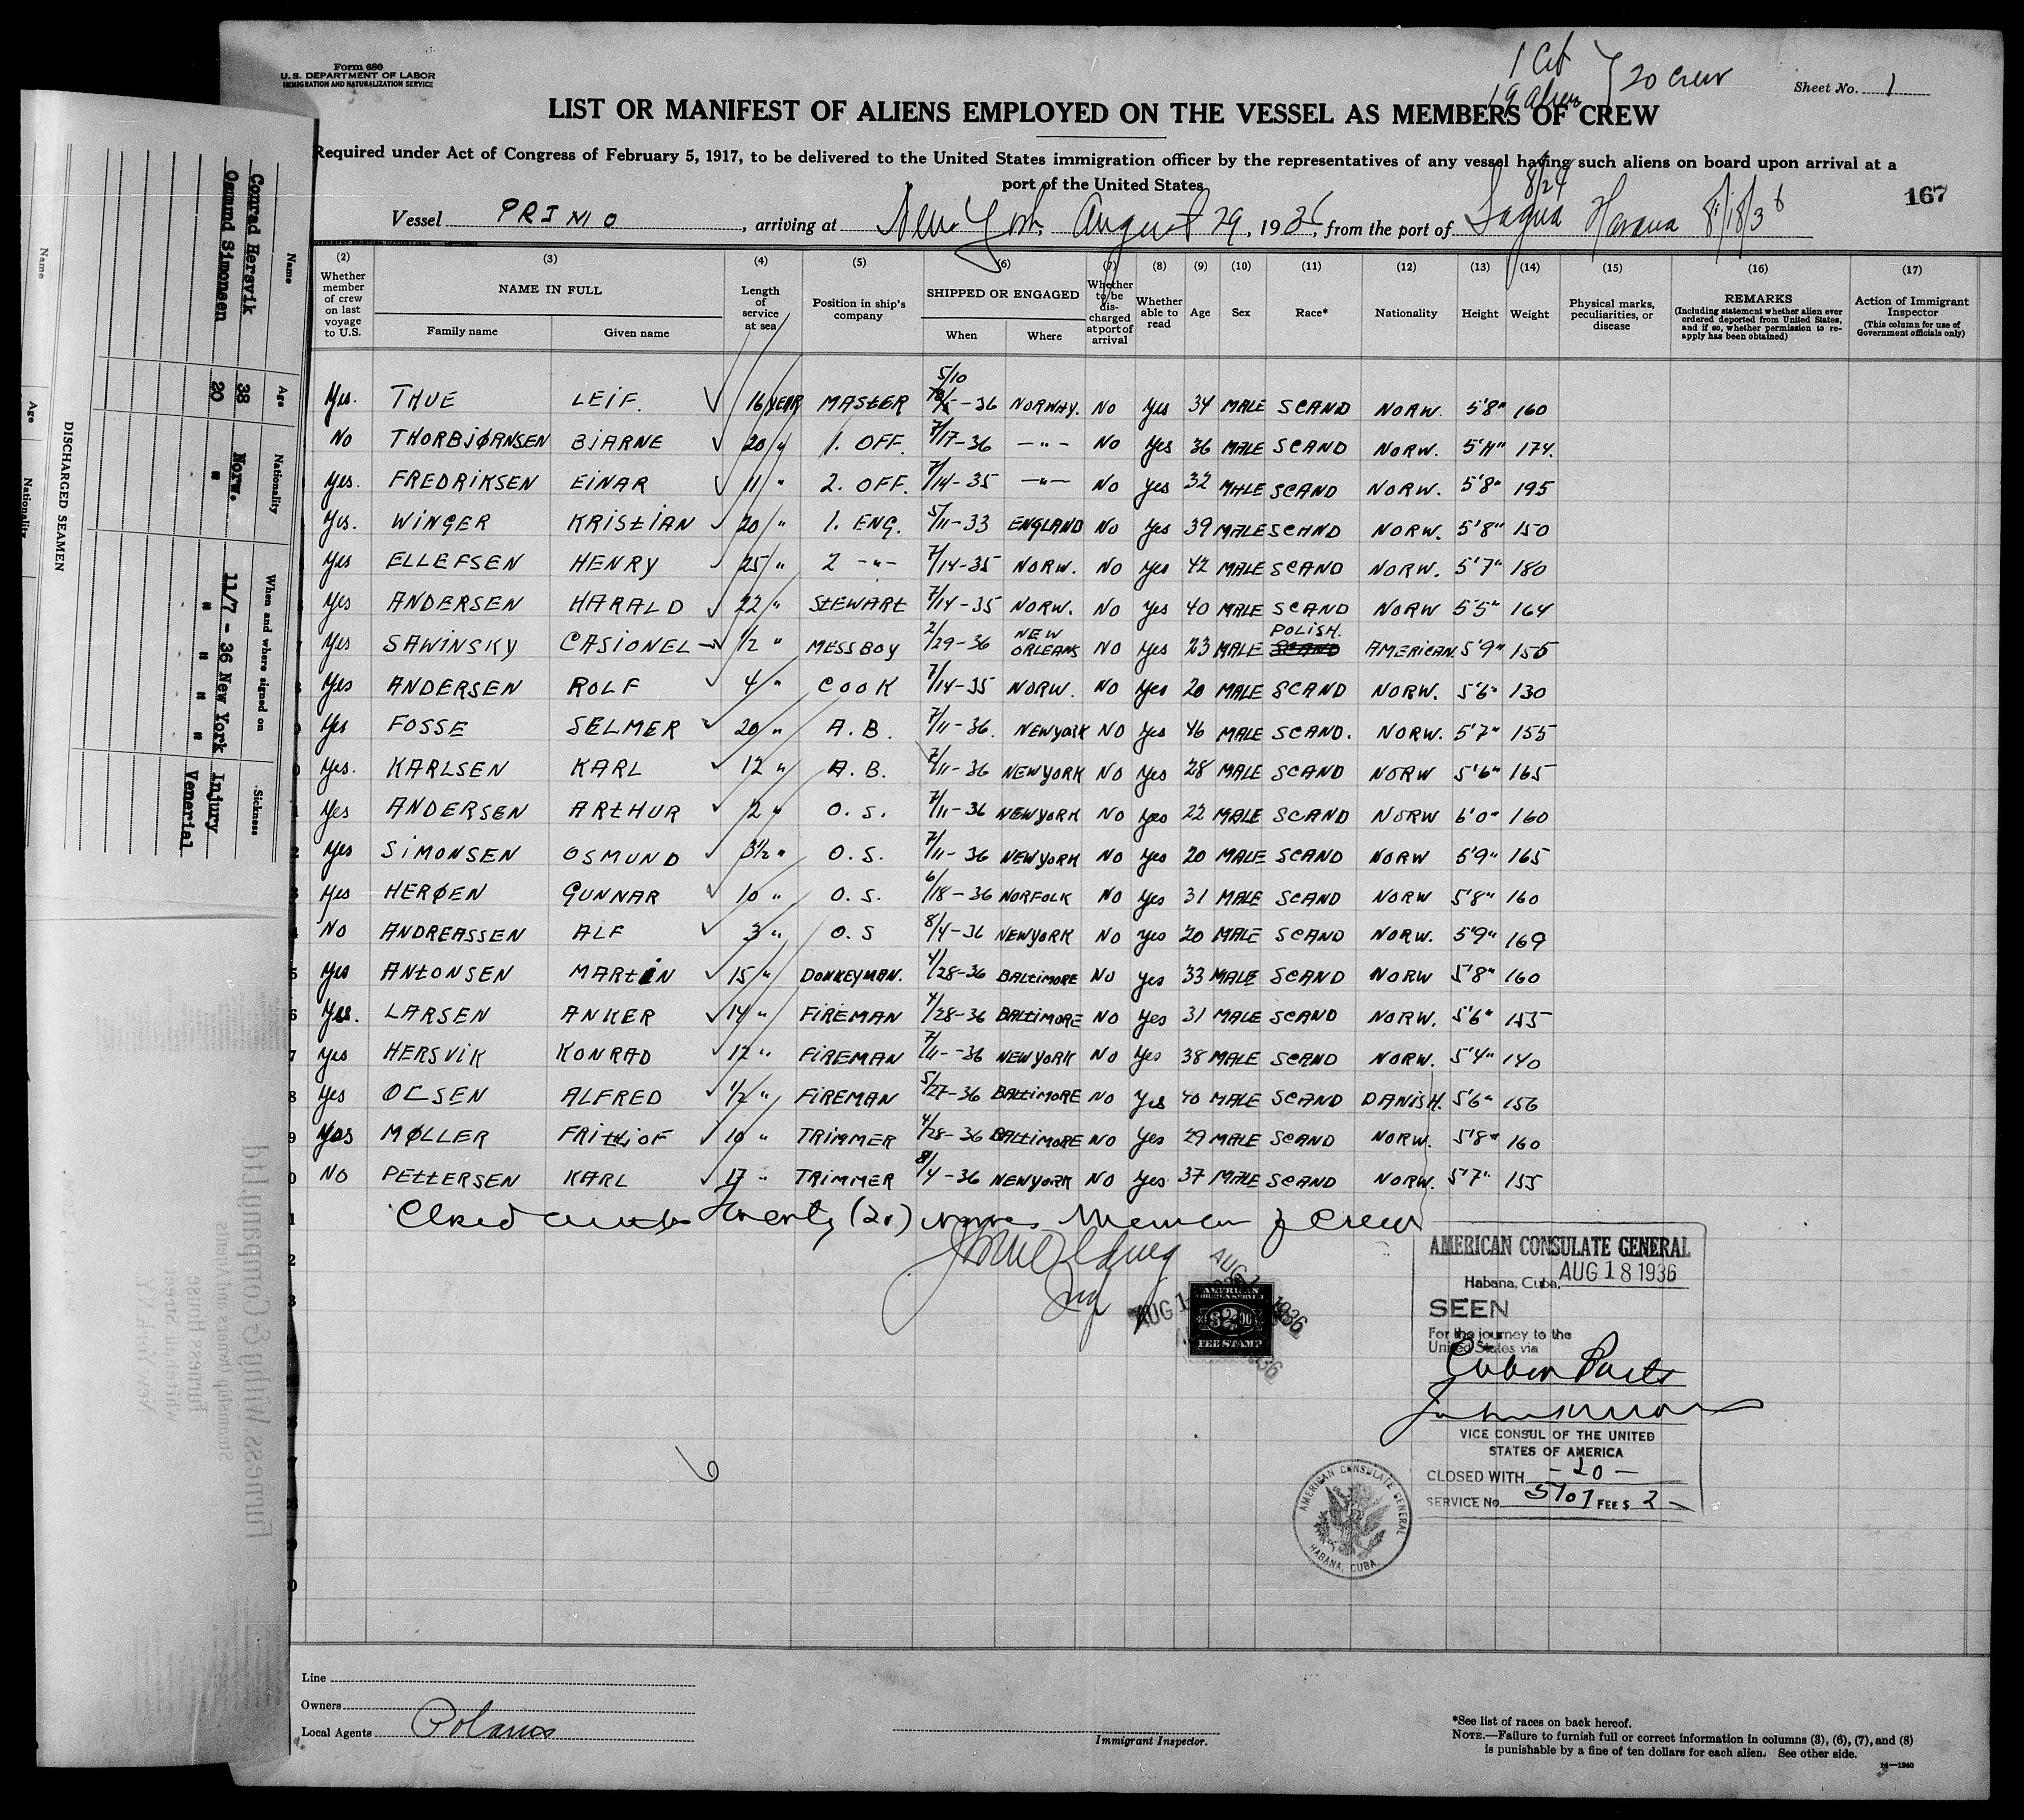 Form 680
U. S. DEPARTMENT OF LABOR
IMMIGRATION AND NATURALIZATION SERVICE
1 Cit
19 aliens
20 crew
Sheet No. 1
LIST OR MANIFEST OF ALIENS EMPLOYED ON THE VESSEL AS MEMBERS OF CREW
Required under Act of Congress of February 5, 1917, to be delivered to the United States immigration officer by the representatives of any vessel having such aliens on board upon arrival at a
port of the United States
167
8/24
Vessel PRIMO, arriving at New York, August 29, 1936, from the port of Sagua Havana 8/18/36
(2) (3) (4) (5) (6) (7) (8) (9) (10) (11) (12) (13) (14) (15) (16) (17)
Whether member of crew on last voyage to U.S.
NAME IN FULL
Family name
Given name
Length of service at sea
Position in ship's company
SHIPPED OR ENGAGED
When
Where
Whether to be discharged at port of arrival
Whether able to read
Age
Sex
Race*
Nationality
Height
Weight
Physical marks, peculiarities, or disease
REMARKS
(Including statement whether alien ever ordered deported from United States, and if so, whether permission to reapply has been obtained)
Action of Immigrant Inspector
(This column for use of Government officials only)
Yes. THUE LEIF. 16 YEAR MASTER 5/10 -36 NORWAY. NO Yes 34 MALE SCAND NORW. 5'8" 160
No THORBJØRNSEN BJARNE 20 " 1. OFF. 7/17-36 -"- NO Yes 36 MALE SCAND NORW. 5'11" 174.
Yes. FREDRIKSEN EINAR 11 " 2. OFF. 7/14-35 -"- NO Yes 32 MALE SCAND NORW. 5'8" 195
Yes. WINGER KRISTIAN 20 " 1. ENG. 5/11-33 ENGLAND NO Yes 39 MALE SCAND NORW. 5'8" 150
Yes ELLEFSEN HENRY 25 " 2 -"- 7/14-35 NORW. NO Yes 42 MALE SCAND NORW. 5'7" 180
Yes ANDERSEN HARALD 22 " STEWART 7/14-35 NORW. NO Yes 40 MALE SCAND NORW 5'5" 164
Yes SAWINSKY CASIONEL 1/2 " MESSBOY 2/29-36 NEW ORLEANS NO Yes 23 MALE POLISH. SCAND AMERICAN. 5'9" 155
Yes ANDERSEN ROLF 4 " COOK 7/14-35 NORW. NO Yes 20 MALE SCAND NORW. 5'6" 130
Yes FOSSE SELMER 20 " A.B. 7/11-36. NEWYORK NO Yes 46 MALE SCAND. NORW. 5'7" 155
Yes. KARLSEN KARL 12 " A.B. 7/11-36 NEWYORK NO Yes 28 MALE SCAND NORW 5'6" 165
Yes ANDERSEN ARTHUR 2 " O.S. 7/11-36 NEWYORK NO Yes 22 MALE SCAND NORW 6'0" 160
Yes SIMONSEN OSMUND 3 1/2 " O.S. 7/11-36 NEWYORK NO Yes 20 MALE SCAND NORW 5'9" 165
Yes HERØEN GUNNAR 10 " O.S. 6/18-36 NORFOLK NO Yes 31 MALE SCAND NORW 5'8" 160
No ANDREASSEN ALF 3 " O.S 8/4-36 NEWYORK NO Yes 20 MALE SCAND NORW. 5'9" 169
Yes ANTONSEN MARTIN 15 " DONKEYMAN. 4/28-36 BALTIMORE NO Yes 33 MALE SCAND NORW 5'8" 160
Yes. LARSEN ANKER 14 " FIREMAN 4/28-36 BALTIMORE NO Yes 31 MALE SCAND NORW. 5'6" 155
Yes HERSVIK KONRAD 17 " FIREMAN 7/11-36 NEWYORK NO Yes 38 MALE SCAND NORW. 5'4" 140
Yes OLSEN ALFRED 1/2 " FIREMAN 5/27-36 BALTIMORE NO Yes 40 MALE SCAND DANISH. 5'6" 156
Yes MØLLER FRITTJOF 10 " TRIMMER 4/28-36 BALTIMORE NO Yes 29 MALE SCAND NORW. 5'8" 160
NO PETTERSEN KARL 17 " TRIMMER 8/4-36 NEWYORK NO Yes 37 MALE SCAND NORW. 5'7" 155
Closed with twenty (20) names Members of Crew
AMERICAN FOREIGN SERVICE
$2.00
FEE STAMP
AMERICAN CONSULATE GENERAL
Habana, Cuba, AUG 18 1936
SEEN
For the journey to the
United States via
Cuban Ports
VICE CONSUL OF THE UNITED
STATES OF AMERICA
CLOSED WITH -20-
SERVICE No. 5707 FEE $ 2-
AMERICAN CONSULATE GENERAL
HABANA, CUBA.
Line
Owners
Local Agents
Immigrant Inspector.
*See list of races on back hereof.
NOTE.—Failure to furnish full or correct information in columns (3), (6), (7), and (8)
is punishable by a fine of ten dollars for each alien. See other side.
14—1240
DISCHARGED SEAMEN
Name Age Nationality When and where signed on Sickness
Conrad Hersvik 38 Norw. 11/7 - 36 New York Injury
Osmund Simonsen 20 " " " " Venerial
Name Age Nationality
Furness Withy & Company, Ltd
Steamship Owners and Agents
Furness House
Whitehall Street
New York, N.Y.